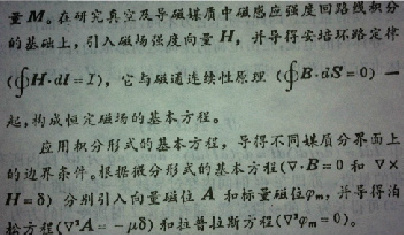 量 M。在研究真空及导磁媒质中磁感应强度回路线积分
的基础上，引入磁场强度向量 H，并导得安培环路定律
(∮H·dl=I)，它与磁通连续性原理 (∮B·dS=0) 一
起，构成恒定磁场的基本方程。
应用积分形式的基本方程，导得不同媒质分界面上
的边界条件。根据微分形式的基本方程(∇·B=0 和 ∇×
H=δ) 分别引入向量磁位 A 和标量磁位φm，并导得泊
松方程(∇²A=-μδ) 和拉普拉斯方程(∇²φm=0)。